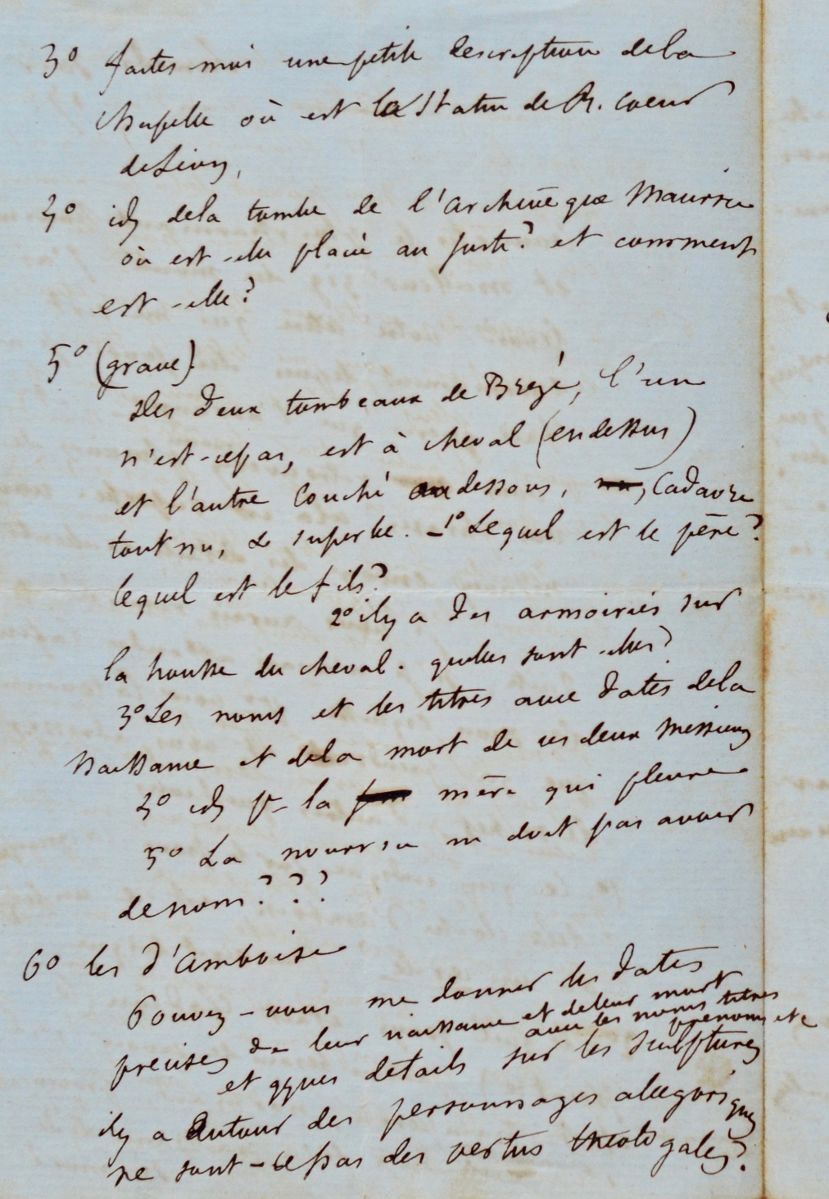 3° faites moi une petite description de la
chapelle où est la Statue de R. Coeur
de Lion,
4° id de la tombe de l'archevêque Maurice
où est-elle placée au juste? et comment
est-elle?
5° (grave).
Des deux tombeaux de Brézé, l'un
n'est-ce pas, est à cheval (en dessus)
et l'autre couché au dessous, cadavre
tout nu, & superbe. – 1° Lequel est le père?
lequel est le fils?
2° il y a des armoiries sur
la housse du cheval. quelles sont-elles?
3° Les noms et les titres avec dates de la
naissance et de la mort de ces deux Messieurs
4° id pr la mère qui pleure
5° La nourrice ne doit pas avoir
de nom???
6° les d'Amboise
Pouvez-vous me donner les dates
précises de leur naissance et de leur mort
avec les noms titres
prénoms etc
et qques détails sur les sculptures
il y a autour des personnages allegoriques
ne sont-ce pas des vertus théologales?